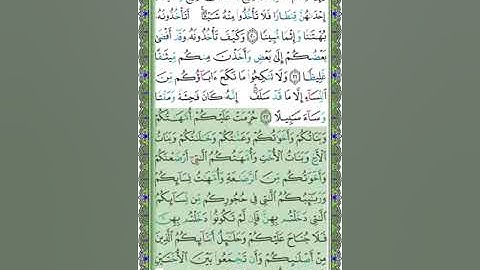 إِحْدَىٰهُنَّ قِنطَارًا فَلَا تَأْخُذُوا۟ مِنْهُ شَيْـًٔا ۚ أَتَأْخُذُونَهُۥ
بُهْتَٰنًا وَإِثْمًا مُّبِينًا ﴿٢٠﴾ وَكَيْفَ تَأْخُذُونَهُۥ وَقَدْ أَفْضَىٰ
بَعْضُكُمْ إِلَىٰ بَعْضٍ وَأَخَذْنَ مِنكُم مِّيثَٰقًا
غَلِيظًا ﴿٢١﴾ وَلَا تَنكِحُوا۟ مَا نَكَحَ ءَابَآؤُكُم مِّنَ
ٱلنِّسَآءِ إِلَّا مَا قَدْ سَلَفَ ۚ إِنَّهُۥ كَانَ فَٰحِشَةً وَمَقْتًا
وَسَآءَ سَبِيلًا ﴿٢٢﴾ حُرِّمَتْ عَلَيْكُمْ أُمَّهَٰتُكُمْ
وَبَنَاتُكُمْ وَأَخَوَٰتُكُمْ وَعَمَّٰتُكُمْ وَخَٰلَٰتُكُمْ وَبَنَاتُ
ٱلْأَخِ وَبَنَاتُ ٱلْأُخْتِ وَأُمَّهَٰتُكُمُ ٱلَّٰتِىٓ أَرْضَعْنَكُمْ
وَأَخَوَٰتُكُم مِّنَ ٱلرَّضَٰعَةِ وَأُمَّهَٰتُ نِسَآئِكُمْ
وَرَبَٰٓئِبُكُمُ ٱلَّٰتِى فِى حُجُورِكُم مِّن نِّسَآئِكُمُ
ٱلَّٰتِى دَخَلْتُم بِهِنَّ فَإِن لَّمْ تَكُونُوا۟ دَخَلْتُم بِهِنَّ
فَلَا جُنَاحَ عَلَيْكُمْ وَحَلَٰٓئِلُ أَبْنَآئِكُمُ ٱلَّذِينَ
مِنْ أَصْلَٰبِكُمْ وَأَن تَجْمَعُوا۟ بَيْنَ ٱلْأُخْتَيْنِ